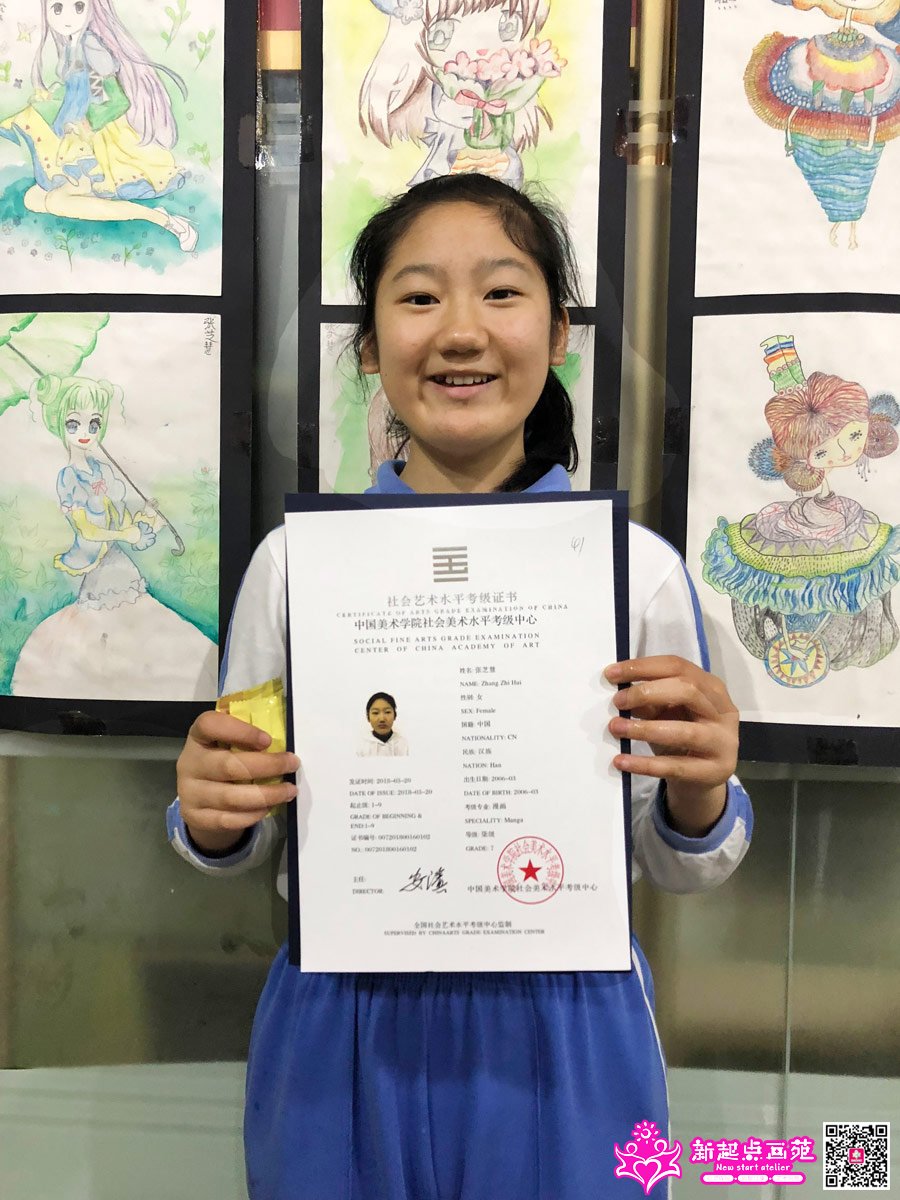 张芝慧
张芝慧
41
社会艺术水平考级证书
CERTIFICATE OF ARTS GRADE EXAMINATION OF CHINA
中国美术学院社会美术水平考级中心
SOCIAL FINE ARTS GRADE EXAMINATION
CENTER OF CHINA ACADEMY OF ART
姓名: 张芝慧
NAME: Zhang Zhi Hui
性别: 女
SEX: Female
国籍: 中国
NATIONALITY: CN
民族: 汉族
NATION: Han
出生日期: 2006-03
DATE OF BIRTH: 2006-03
考级专业: 漫画
SPECIALITY: Manga
等级: 柒级
GRADE: 7
发证时间: 2018-03-20
DATE OF ISSUE: 2018-03-20
起止级: 1-9
GRADE OF BEGINNING &
END:1-9
证书编号: 007201800160102
NO.: 007201800160102
主任:
DIRECTOR:
中国美术学院社会美术水平考级中心
中国美术学院社会美术水平考级中心
全国社会艺术水平考级中心监制
SUPERVISED BY CHINAARTS GRADE EXAMINATION CENTER
新起点画苑
New start atelier